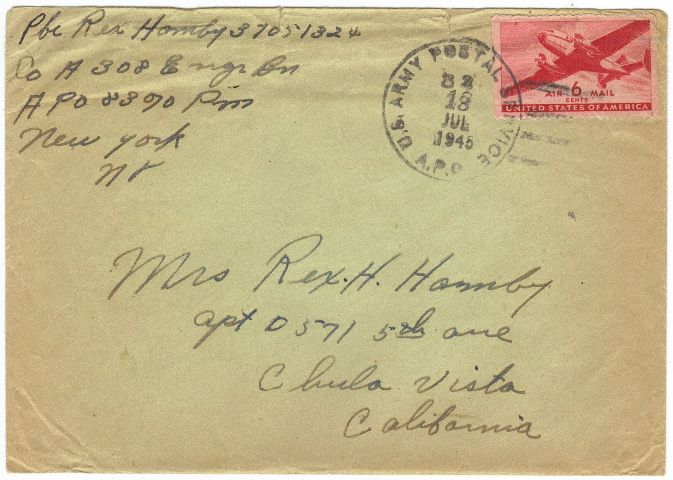 Pbc Rex Hamby 37051324
Co A 308 Engr Bn
APO 8390 Pm
New York
NY
U.S. ARMY POSTAL SERVICE
18
JUL
1945
A.P.O.
AIR 6 MAIL
CENTS
UNITED STATES OF AMERICA
Mrs Rex. H. Hamby
apt D 571 5th ave
Chula Vista
California